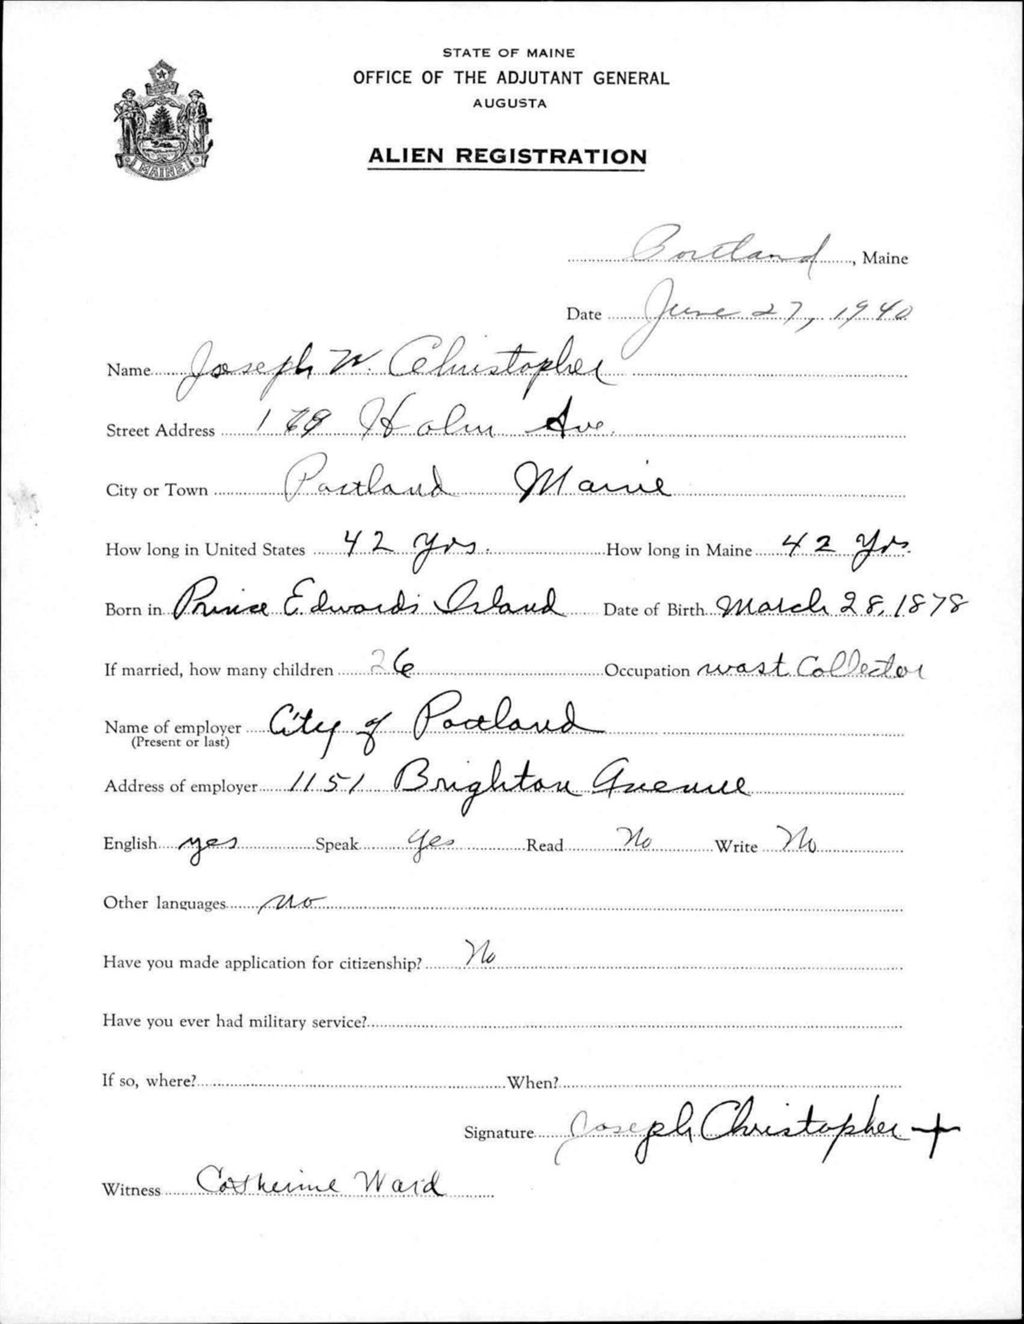 STATE OF MAINE
OFFICE OF THE ADJUTANT GENERAL
AUGUSTA
ALIEN REGISTRATION
MAINE
Portland, Maine
Date June 27, 1940
Name Joseph W. Christopher
Street Address Holm Ave.
City or Town Portland Maine
How long in United States 42 yrs. How long in Maine 42 Yrs.
Born in Prince Edwards Island Date of Birth March 28, 1878
If married, how many children Occupation wast Collector
Name of employer City of Portland
(Present or last)
Address of employer 1151 Brighton Avenue
English yes Speak yes Read No Write No
Other languages no
Have you made application for citizenship? No
Have you ever had military service?
If so, where? When?
Signature Joseph Christopher +
Witness Catherine Ward